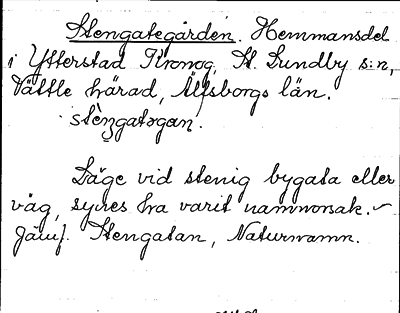 Stengategården. Hemmansdel
i Ytterstad Kronog, St. Lundby s:n,
Vättle härad, Älfsborgs län.
Läge vid stenig bygata eller
väg, synes ha varit namnorsak. -
Jämf. Stengatan, Naturnamn.